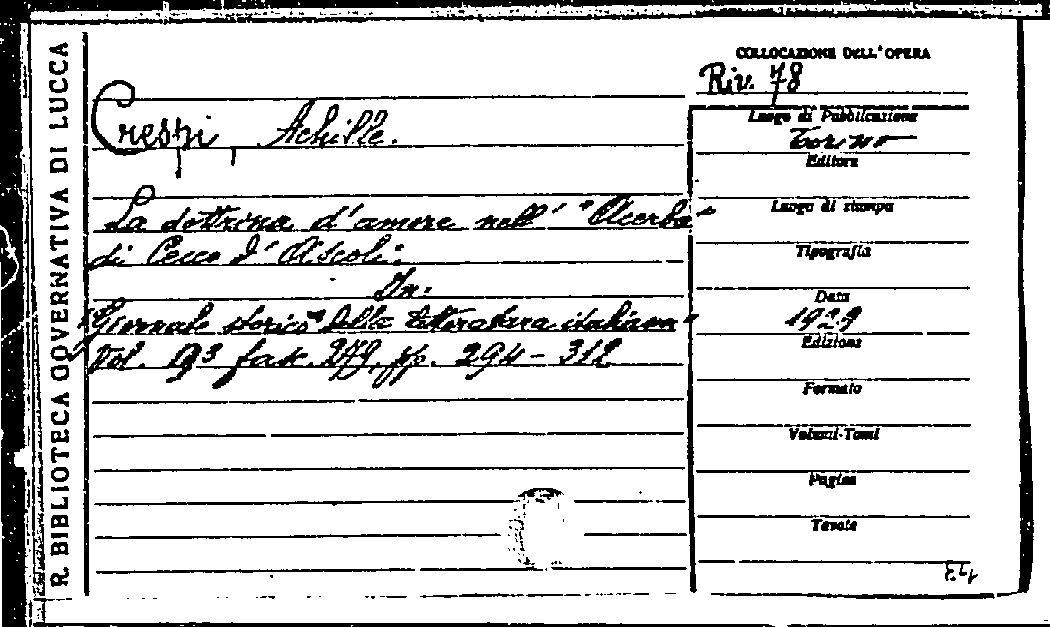 R. BIBLIOTECA GOVERNATIVA DI LUCCA
COLLOCAZIONE DELL'OPERA
Riv. 78
Crespi, Achille.
La dottrina d'amore nell' "Acerba"
di Cecco d'Ascoli:
In:
"Giornale storico della letteratura italiana"
Vol. 93 fasc. 279, pp. 294-312
Luogo di Pubblicazione
Torino
Editore
Luogo di stampa
Tipografia
Data
1929
Edizione
Formato
Volumi-Tomi
Pagine
Tavole